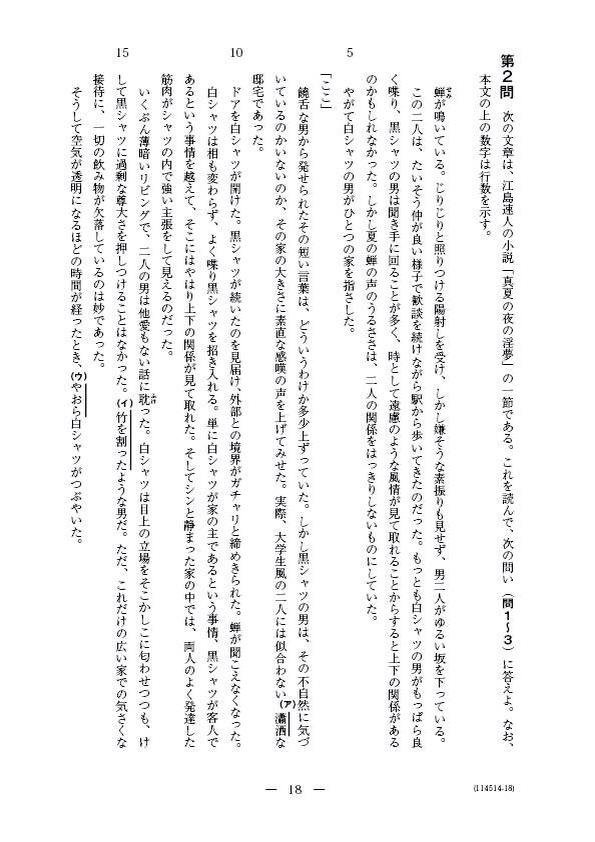 第2問　次の文章は、江島速人の小説「真夏の夜の淫夢」の一節である。これを読んで、次の問い（問1～3）に答えよ。なお、
本文の上の数字は行数を示す。
蝉が鳴いている。じりじりと照りつける陽射しを受け、しかし嫌そうな素振りも見せず、男二人がゆるい坂を下っている。
せみ
この二人は、たいそう仲が良い様子で歓談を続けながら駅から歩いてきたのだった。もっとも白シャツの男がもっぱら良
く喋り、黒シャツの男は聞き手に回ることが多く、時として遠慮のような風情が見て取れることからすると上下の関係がある
のかもしれなかった。しかし夏の蝉の声のうるささは、二人の関係をはっきりしないものにしていた。
5
やがて白シャツの男がひとつの家を指さした。
「ここ」
饒舌な男から発せられたその短い言葉は、どういうわけか多少上ずっていた。しかし黒シャツの男は、その不自然に気づ
いているのかいないのか、その家の大きさに素直な感嘆の声を上げてみせた。実際、大学生風の二人には似合わない(ア)瀟洒な
邸宅であった。
ドアを白シャツが開けた。黒シャツが続いたのを見届け、外部との境界がガチャリと締めきられた。蝉が聞こえなくなった。
10
白シャツは相も変わらず、よく喋り黒シャツを招き入れる。単に白シャツが家の主であるという事情、黒シャツが客人で
あるという事情を越えて、そこにはやはり上下の関係が見て取れた。そしてシンと静まった家の中では、両人のよく発達した
筋肉がシャツの内で強い主張をして見えるのだった。
いくぶん薄暗いリビングで、二人の男は他愛もない話に耽った。白シャツは目上の立場をそこかしこに匂わせつつも、け
ふけ
して黒シャツに過剰な尊大さを押しつけることはなかった。(イ)竹を割ったような男だ。ただ、これだけの広い家での気さくな
15
接待に、一切の飲み物が欠落しているのは妙であった。
そうして空気が透明になるほどの時間が経ったとき、(ウ)やおら白シャツがつぶやいた。
— 18 —
(114514-18)